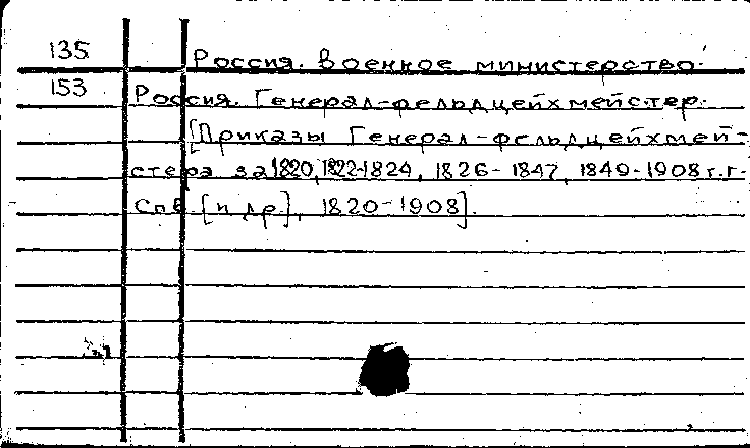 135 Россия. Военное министерство.
153 Россия. Генерал-фельдцейхмейстер.
[Приказы Генерал-фельдцейхмей-
стера за 1820, 1822-1824, 1826-1847, 1849-1908 г.г.
Спб. [и др], 1820-1908].